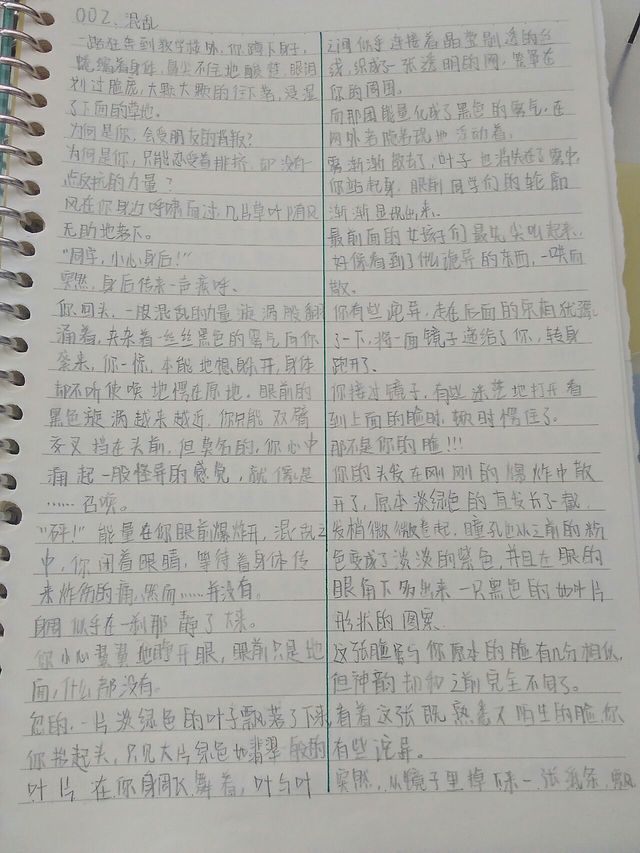 002.混乱
一路狂奔到教学楼外,你蹲下身子,
蜷缩着身体,鼻尖不住地酸楚,眼泪
划过脸庞,大颗大颗的往下落,浸湿
了下面的草地。
为何是你,会受朋友的背叛?
为何是你,只能忍受着排挤,却没有一
点反抗的力量?
风在你身边呼啸而过,几片草叶随风
无助地落下。
"同学,小心身后!"
突然,身后传来一声疾呼。
你回头,一股混乱的力量漩涡般翻
涌着,夹杂着一丝丝黑色的雾气向你
袭来,你一惊,本能地想躲开,身体
却不听使唤地愣在原地。眼前的
黑色旋涡越来越近,你只能双臂
交叉挡在头前,但莫名的,你心中
涌起一股怪异的感觉,就像是
……召唤。
"砰!"能量在你眼前爆炸开,混乱之
中,你闭着眼睛,等待着身体传
来炸伤的痛,然而……并没有。
身周似乎在一刹那静了下来。
你小心翼翼地睁开眼,眼前只是地
面,什么都没有。
忽的,一片淡绿色的叶子飘落了下来
你抬起头,只见大片绿色如翡翠般的
叶片,在你身周飞舞着,叶与叶
之间似乎连接着晶莹剔透的丝
线,织成了一张透明的网,笼罩在
你的周围。
而那团能量化成了黑色的雾气,在
网外若隐若现地浮动着。
雾渐渐散去了,叶子也消失在了雾中
你站起身,眼前同学们的轮廓
渐渐显现出来。
最前面的女孩子们最先尖叫起来,
好像看到了什么诡异的东西,一哄而
散。
你有些诧异,走在后面的
了一下,将一面镜子递给了你,转身
跑开了。
你接过镜子,有些迷茫地打开看
到上面的脸时,顿时愣住了。
那不是你的脸!!!
你的头发在刚刚的爆炸中散
开了,原本淡绿色的直发后了截,
发梢微微卷起,瞳孔也从之前的粉
色变成了淡淡的紫色,并且左眼的
眼角下多出来一只黑色的如叶片
形状的图案。
这张脸虽与你原本的脸有几分相似,
但神韵却和之前完全不同了。
看着这张既熟悉又陌生的脸,你
有些诧异。
突然,从镜子里掉下来一张纸条,飘